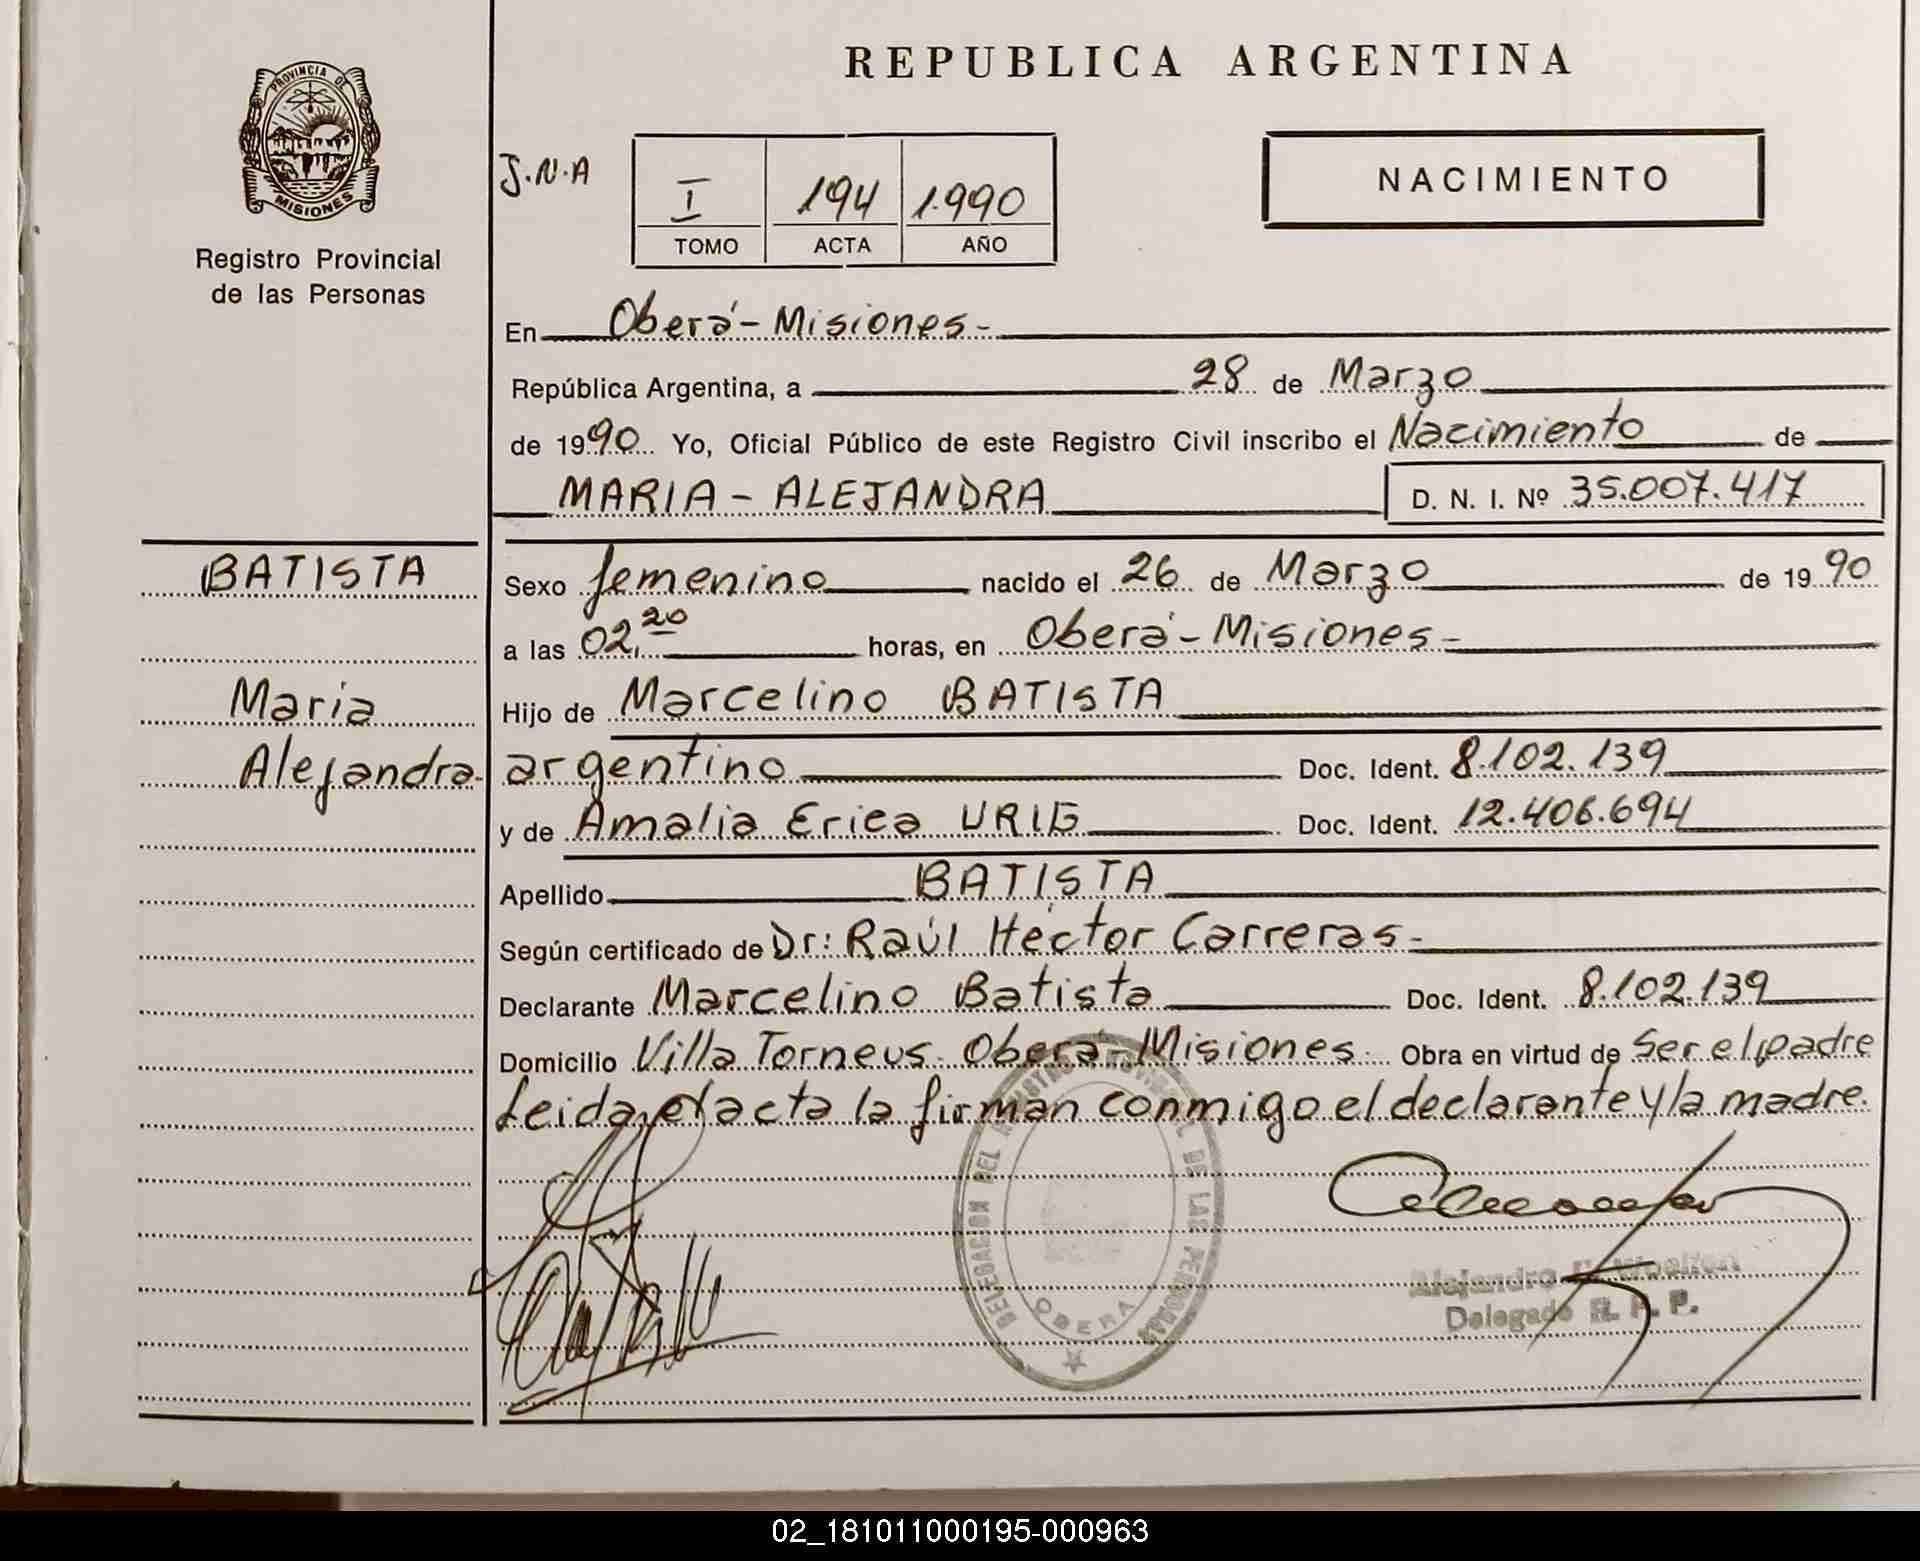 REPUBLICA ARGENTINA
PROVINCIA DE MISIONES
Registro Provincial
de las Personas
J.N.A
I 194 1.990
TOMO ACTA AÑO
NACIMIENTO
En Oberá-Misiones-
República Argentina, a 28 de Marzo
de 1990 Yo, Oficial Público de este Registro Civil inscribo el Nacimiento de
MARIA-ALEJANDRA D. N. I. Nº 35.007.417
BATISTA
Maria
Alejandra-
Sexo femenino nacido el 26 de Marzo de 1990
a las 02.20 horas, en Oberá-Misiones-
Hijo de Marcelino BATISTA
argentino Doc. Ident. 8.102.139
y de Amalia Erica URIG Doc. Ident. 12.406.694
Apellido BATISTA
Según certificado de Dr: Raúl Héctor Carreras-
Declarante Marcelino Batista Doc. Ident. 8.102.139
Domicilio Villa Torneus. Oberá-Misiones. Obra en virtud de Ser el padre
Leida el acta la firman conmigo el declarante y la madre.
DELEGACION DEL REGISTRO PROVINCIAL DE LAS PERSONAS
OBERA
Alejandro
Delegado R. P. P.
02_181011000195-000963